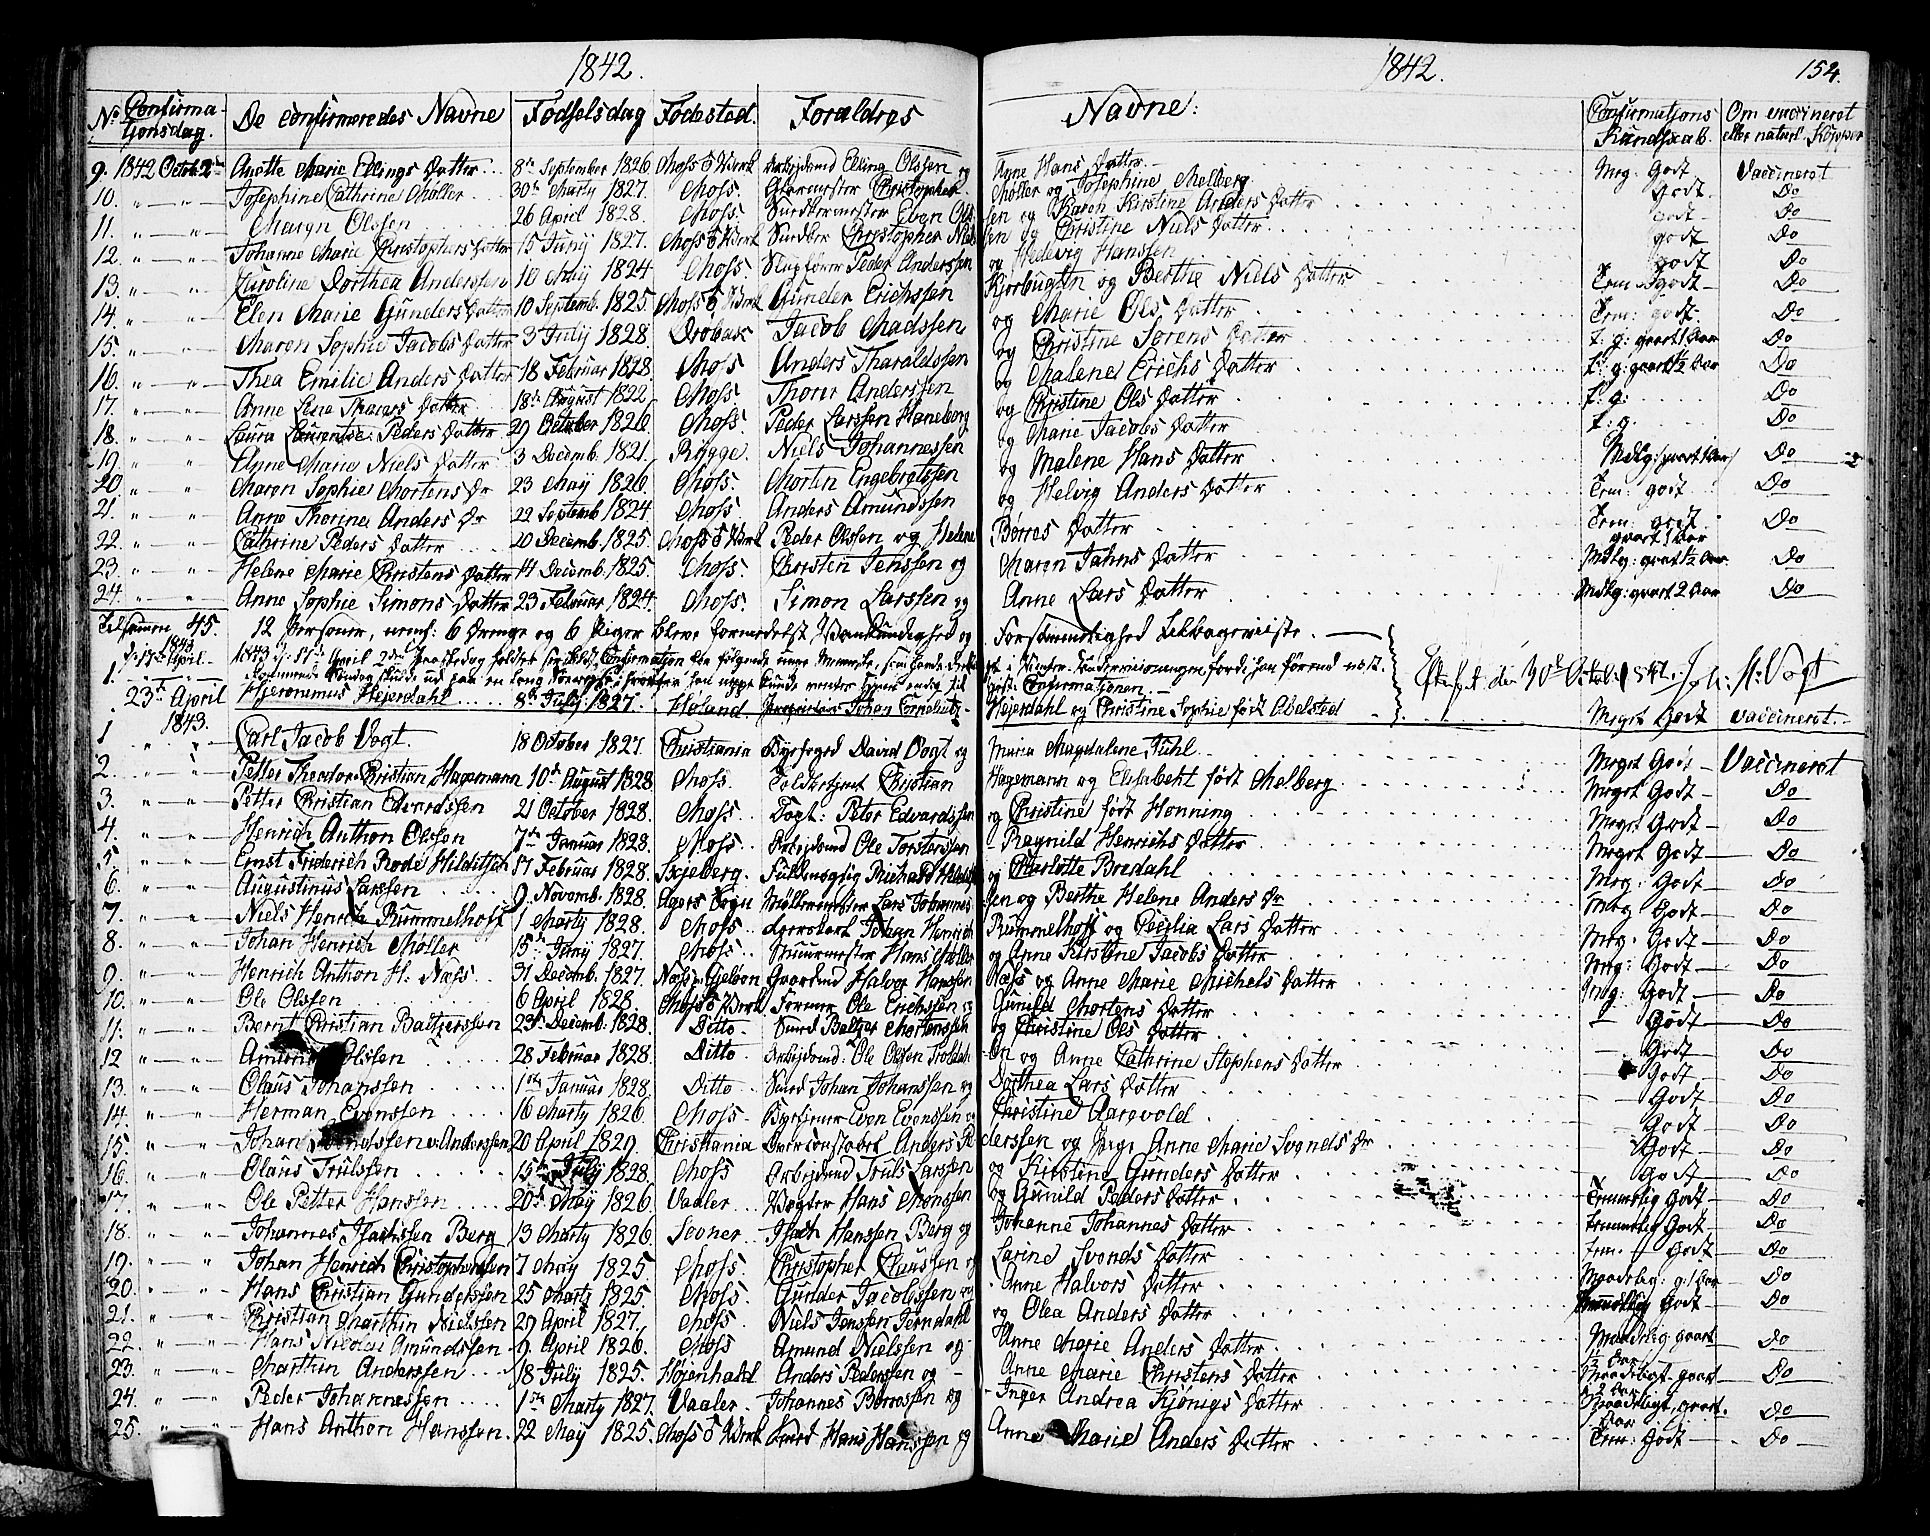 1842. 1842. 154.
No Confirmationsdag. De confirmeredes Navne Fødselsdag Fødested. Forældres Navne: Confirmations Kundskab. Om vaccineret eller naturl. Kopper
9. 1842 Octob. 2den Anette Marie Ellings Datter 8de September 1826 Moss Værk Arbeidsmd Elling Olssen og Anne Hans Datter Meg. Godt Vaccineret
10. " — " — Josephine Cathrine Møller 30te Marty 1827. Moss. Glarmester Christopher Møller og Josephine Melberg Godt. Do
11. " — " — Maryn Olssen 26 April 1828. Moss. Snedkermester Even Olssen og Karen Kirstine Anders Datter godt Do
12. " — " — Johanne Marie Christophers Datter 15 Juny 1827. Moss Værk Snedker Christopher Nielssen og Christine Niels Datter godt Do
13. " — " — Karoline Dorthea Anderssen 10 May 1824 Moss. Skipsfører Peder Anderssen og Hedevig Hanssen godt Do
14. " — " — Elen Marie Gunders Datter 10 Septemb. 1825. Moss Værk Gunder Erichssen Kirrbugten og Berthe Niels Datter Tem. godt Do
15. " — " — Maren Sophie Jacobs Datter 3 July 1828. Drøbak Jacob Madssen og Marie Ols Datter Tem: godt Do
16. " — " — Thea Emilie Anders Datter 18 Februar 1828. Moss. Anders Tharaldssen og Christine Sørens Datter T: g: gvart 1 Aar Do
17. " — " — Anne Lene Thorers Datter 18de August 1822. Moss. Thorer Anderssen og Malene Erichs Datter T: g: gvart ½ Aar Do
18. " — " — Laura Laurentse Peders Datter 29 October 1826. Moss. Peder Larssen Haneborg og Christine Ols Datter T: g: Do
19. " " Anne Marie Niels Datter 3 Decemb. 1821. Rygge. Niels Johannessen og Marie Jacobs Datter T: g. Do
20. " — " Maren Sophie Mortens Dr 23 May 1826. Moss. Morten Engebretssen og Malene Hans Datter Mdlg: gvart 1 Aar Do
21. " " Anne Thorine Anders Dr 22 Septemb. 1824 Moss. Anders Amundssen og Helvig Anders Datter Tem: godt Do
22. " — " — Cathrine Peders Datter 20 Decemb. 1825. Moss Værk Peder Olssen og Helene Børres Datter Tem: godt gvart 1 Aar Do
23. " — " — Helene Marie Christens Datter 14 Decemb. 1825. Moss. Christen Jenssen og Maren Jahns Datter Mdlg: gvart ½ Aar Do
24. " — " — Anne Sophie Simons Datter 23 Februar 1824. Moss. Simon Larssen og Anne Lars Datter Mdlg: gvart 2 Aar Do
Tilsamen 45. 12 Personer, neml: 6 Drenge og 6 Piger bleve formedelst Vankundighed og Forsømmelighed tilbageviiste.
1843 d: 17de April 2den Paaskedag holdtes særskilt Confirmation
1. 17de April Hjeronimus Heierdahl 8de July 1827. Høland Johan Cornelius Heierdahl og Christine Sophie født Abelsted Meget Godt vaccineret
23de April 1843.
1 " " Carl Jacob Vogt. 18 October 1827. Christiania Byefoged David Vogt og Maria Magdalene Juhl Meget Godt Vaccineret
2. " " Petter Theodor Christian Hagemann 10de August 1828. Moss. Toldbetjent Christian Hagemann og Elisabeht født Melberg Meget Godt Do
3. " — " Petter Christian Edvardssen 21 October 1828. Moss. Fogt: Peter Edvardssen og Christine født Hønning Meget Godt Do
4. " — " Henrich Anthon Olssen 7de Januar 1828. Moss. Arbeidsmd Ole Torsterssen Ragnild Henrichs Datter Meget Godt Do
5 " — " Ernst Friderich Rode Hilditsch 17 Februar 1828. Skjeberg. Fuldmægtig Richard og Charlotte Bredahl Meg: Godt Do
6. " — " Augustinus Larssen 9. Novemb. 1828. Agers Sogn Møllermester Lars Johannessen og Berthe Helene Anders Dr Meg Godt Do
7. " — " Niels Henrich Rummelhoff 1 Marty 1828. Moss. Johan Henrich Rummelhoff og Cecilia Lars Datter Meg. Godt Do
8. " — " Johan Henrich Møller 15de Juny 1827. Moss. Muurmester Hans Møller og Anne Kirstine Jacobs Datter Meg: Godt Do
9. " — " Henrich Anthon H. Næss. 31 Decemb. 1827. Næss Gjeløen Gaardmd Halvor Hanssen Næs og Anne Marie Michels Datter meg: Godt Do
10. " — " — Ole Olssen 6 April 1828. Moss Værk Former Ole Erichssen og Gunild Mortens Datter Godt Do
11. " — " — Bernt Christian Baltzerssen 23de Decemb. 1828. Ditto Smed Baltzer Mortenssen og Christine Ols Datter Godt Do
12 " — " — Amund Olssen 28 Februar 1828. Ditto. Arbeidsmd: Ole Olssen og Anne Cathrine Stephens Datter Godt Do
13. " — " — Olaus Johanssen 1ste Januar 1828. Ditto Smed Johan Johanssen og Dorthea Lars Datter Godt Do
14. " — " — Herman Evenssen 16 Marty 1826. Moss. Even Evenssen og Christine Aarevold Godt Do
15. " — " — Johan Anderssen 20 April 1829. Christiania Overconstabel Anders Anne Marie Sogneds Dr Godt Do
16. " — " — Olaus Trulssen 15de July 1828. Moss Arbeidsmd Truls Larssen og Kirstine Gunders Datter Godt Do
17. " — " — Ole Petter Hanssen 20de May 1826. Vaaler Vægter Hans Monssen og Gunild Peders Datter Temmelig Godt Do
18. " — " Johannes Isachssen Berg 13 Marty 1826. Soner Isach Hanssen Berg og Johanne Johannes Datter temmelig Godt Do
19. " — " Johan Henrich Christopherssen 7 May 1825. Moss Christopher Claussen og Sarine Svends Datter Tem. Godt Do
20. " — " Hans Christian Gunderssen 25 Marty 1825. Moss. Gunder Jacobssen og Anne Halvors Datter Maadelig: g: 1 Aar Do
21. " — " — Christian Marthin Nielssen 29 April 1827. Moss. Niels Jenssen Jerndahl og Olea Anders Datter Godt Do
22. " — " — Hans Nicolai Amundssen 9 April 1826. Moss Amund Nielssen og Anne Marie Anders Datter Maadelig gvart ½ Aar Do
23. " — " — Marthin Anderssen 18 July 1825. Høienhald Anders Pederssen og Anne Marie Christens Datter Maadeligt gvart 2 Aar Do
24. " — " — Peder Johannessen 1ste Marty 1827. Vaaler Johannes Børressen og Inger Andrea Kjønigs Datter Maadeligt, gvart. Aar Do
25. " — " — Hans Anthon Hanssen. 22 May 1825. Moss Værk Smed Hans Hanssen og Anne Marie Anders Datter Tem: Godt Do